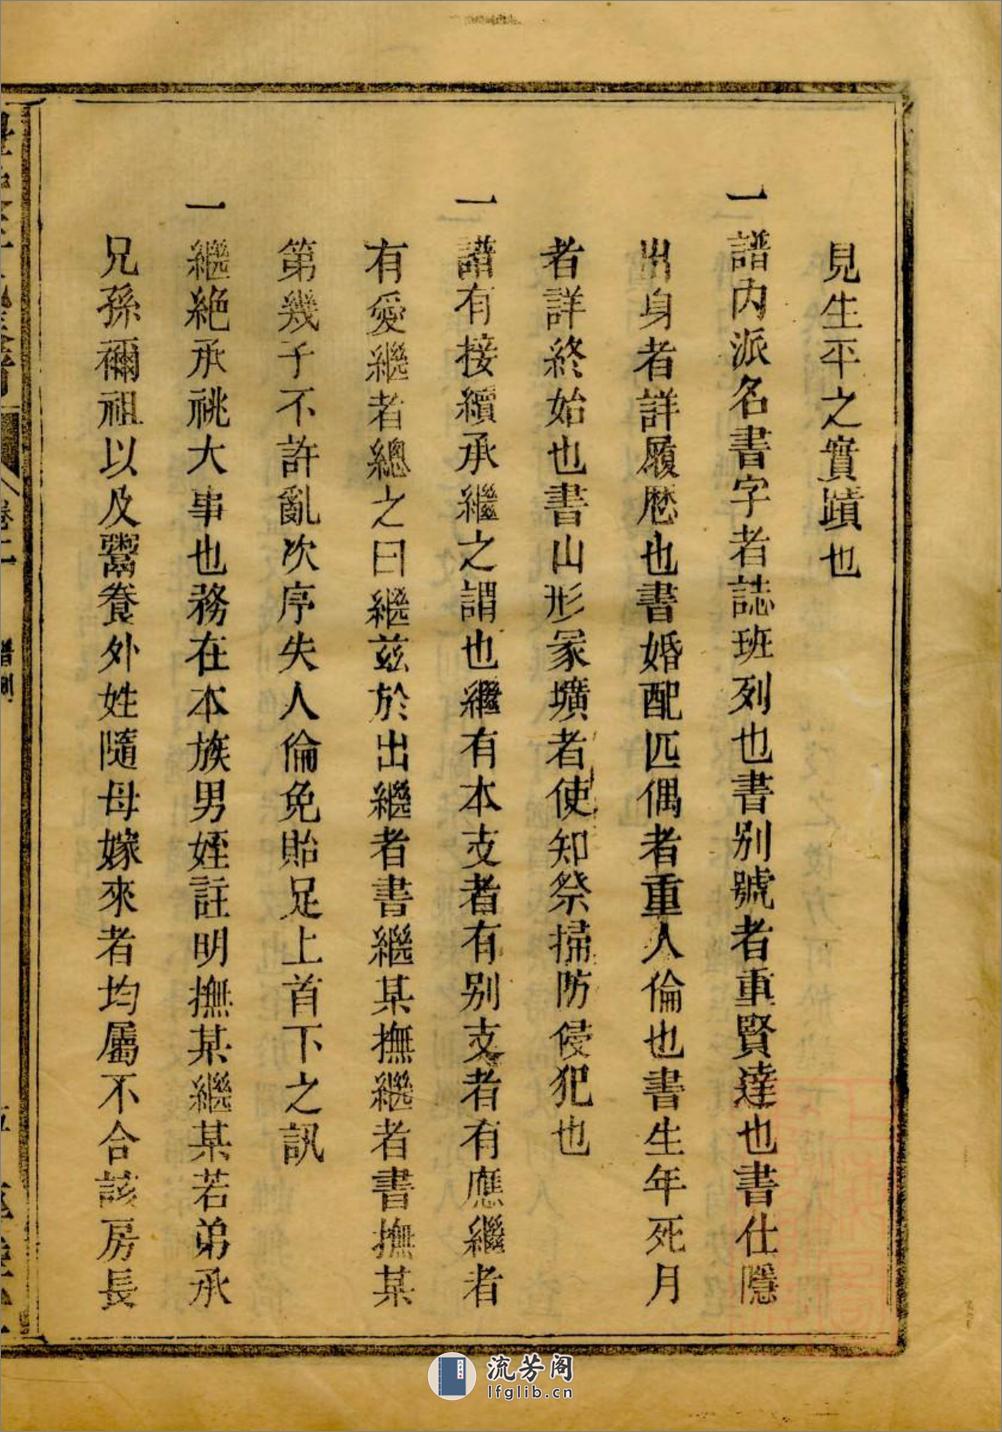 見生平之實蹟也
一譜內派名書字者誌班列也書别號者重賢達也書仕隱
出身者詳履歷也書婚配匹偶者重人倫也書生年死月
者詳終始也書山形冢壙者使知祭掃防侵犯也
一譜有接續承繼之謂也繼有本支者有別支者有應繼者
有愛繼者總之曰繼茲於出繼者書繼某撫繼者書撫某
第幾子不許亂次序失人倫免貽足上首下之訊
一繼絶承祧大事也務在本族男姪註明撫某繼某若弟承
兄孫禰祖以及鬻養外姓隨母嫁來者均屬不合該房長
卷二
譜例
流芳阁
lfglib.cn